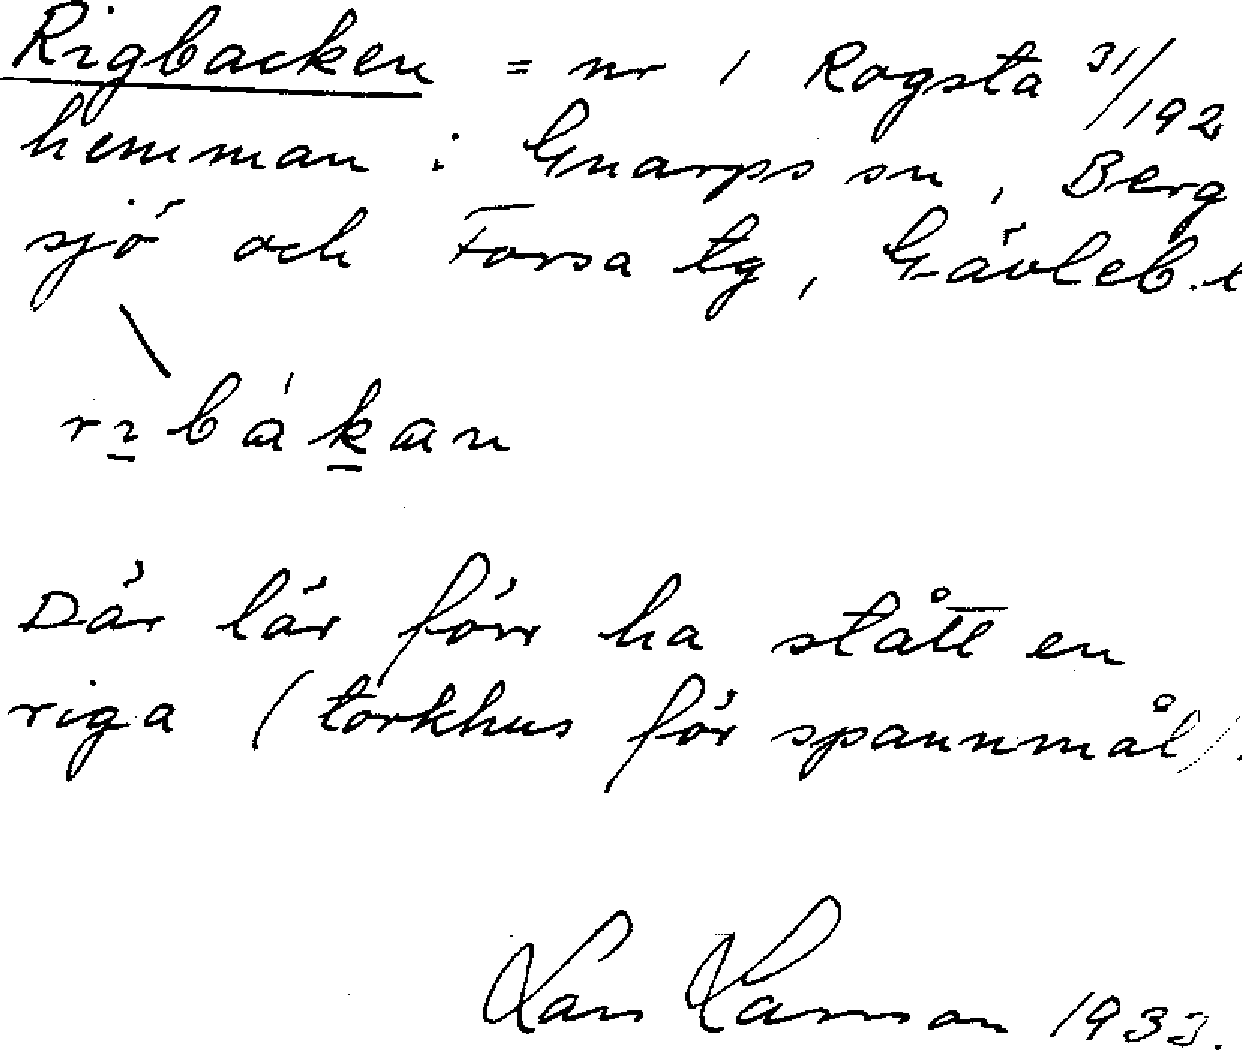 Rigbacken = nr 1 Rogsta 31/192
hemman i Gnarps sn, Berg
sjö och Forsa tg, Gävleb. l
rıbákan
Där lär förr ha stått en
riga (torkhus för spannmål).
Lars Larsson 1933.